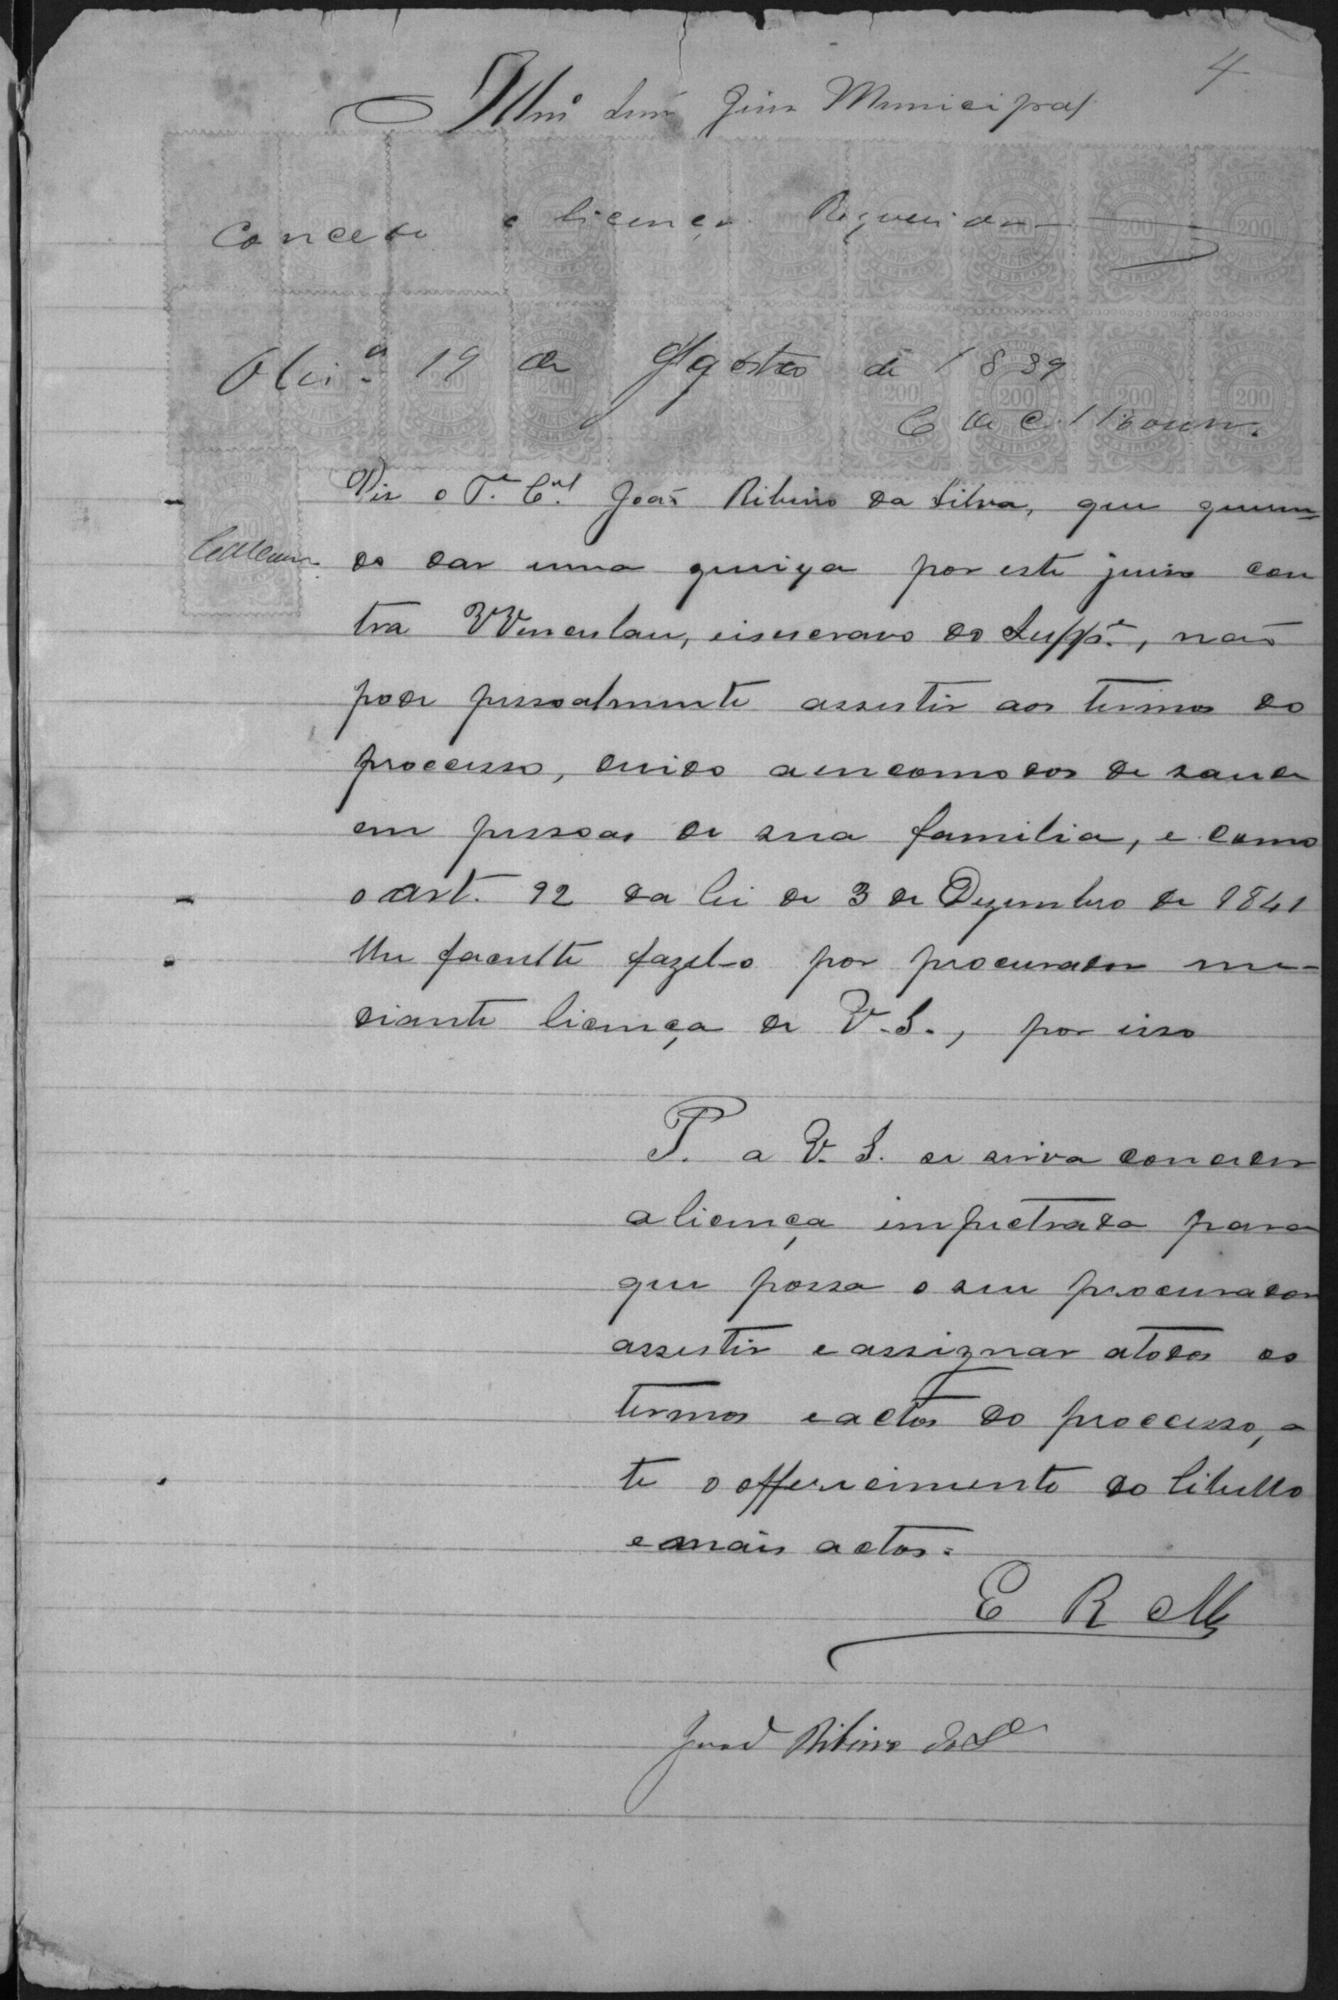 4
Illmo Snr Juiz Municipal
Concedo a licença Requerida
19 de Agosto de 1889
Diz o Te. Cel. João Ribeiro da Silva, que queren=
do dar uma queixa por este juizo con
tra Wenceslau, eiscravo do Suppe., não
pode pessoalmente assestir aos termos do
processo, divido a encomodos de saude
em pessoas de sua familia, e como
o art. 92 da lei de 3 de Dezembro de 1841
lhe faculte fazel-o por procurador me-
diante licença de V.S., por isso
P. a V. S. se sirva conceder
a licença impetrada para
que possa o seu procurador
assestir e assignar a todos os
termos e actos do processo, a
te o offerecimento do libello
e mais actos.
E R M
João Ribeiro da Sa